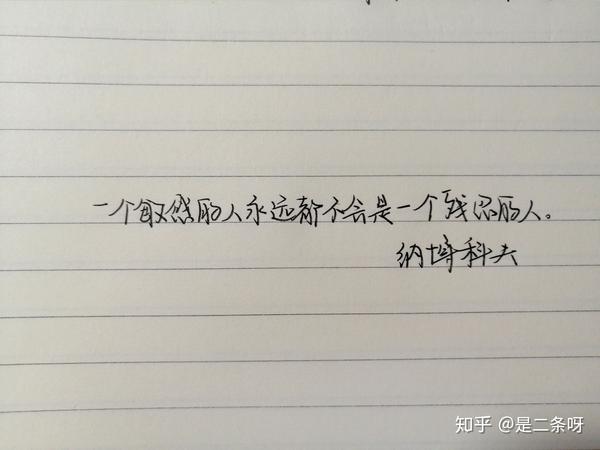 一个敏感的人永远都不会是一个残忍的人。
纳博科夫
知乎 @是二条呀